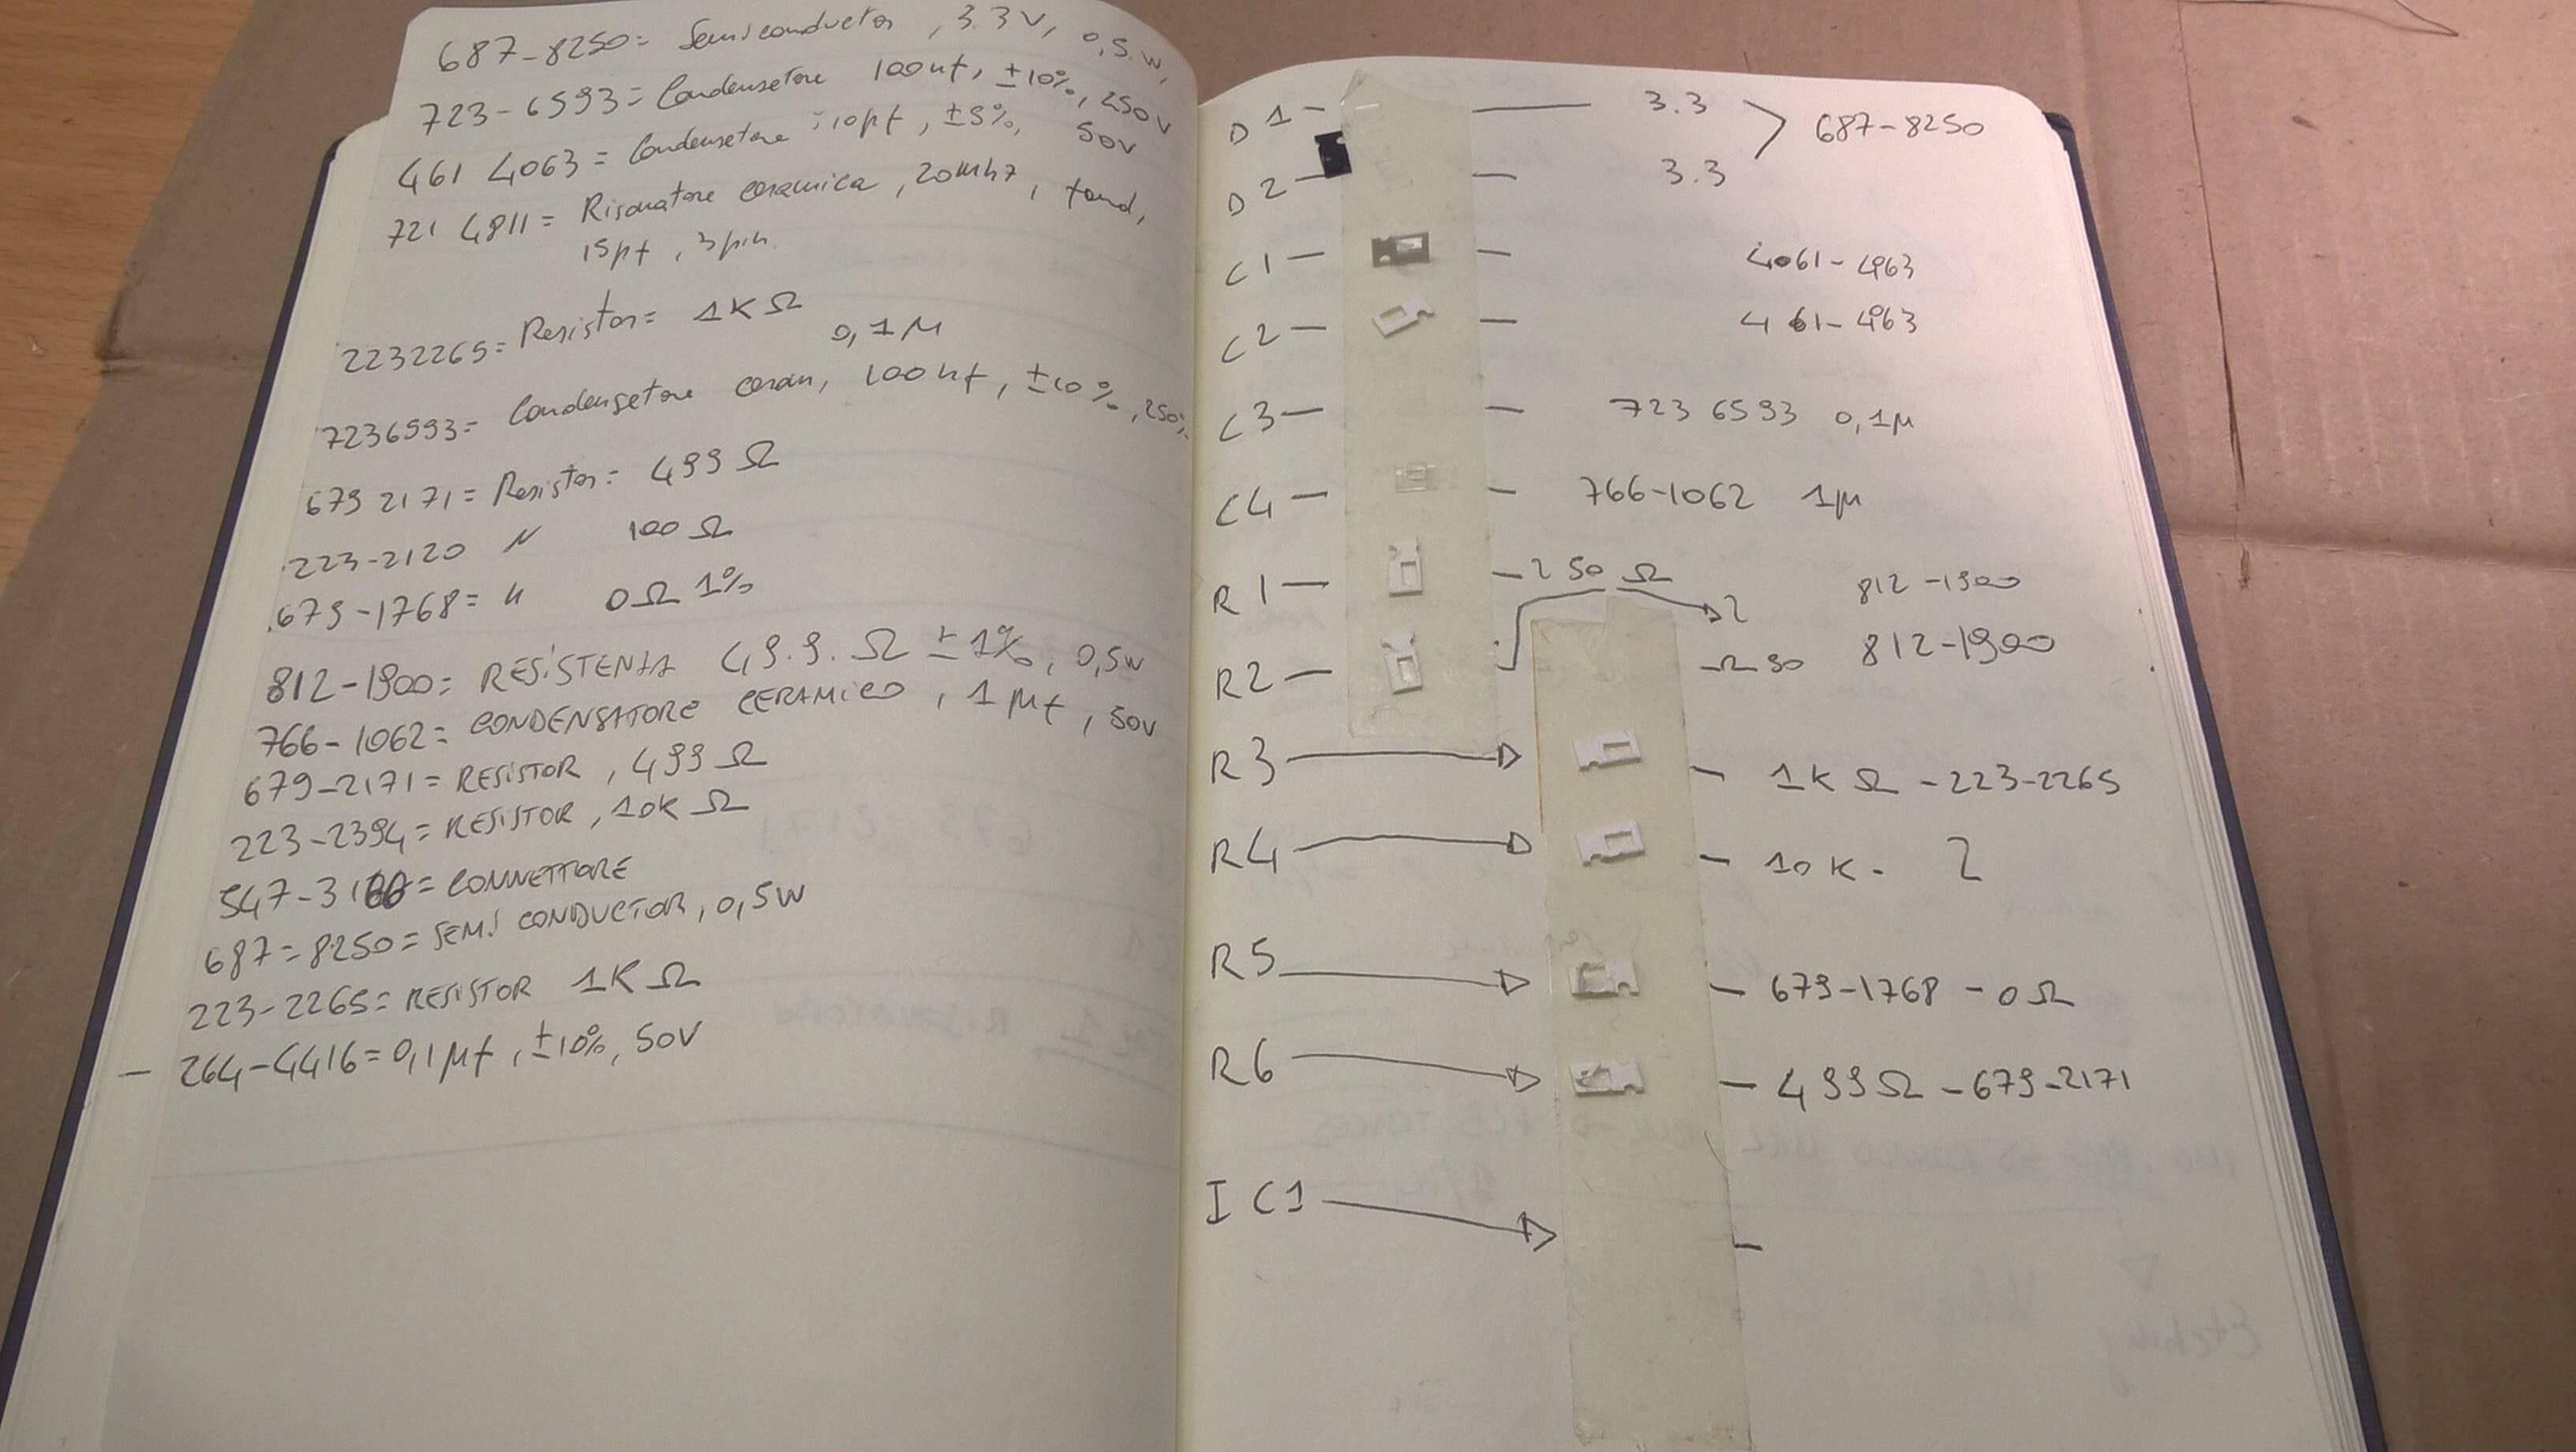 687-8250= Semiconductor, 3.3V, 0,5.W,
723-6593= Condensatore 100nf, ±10%, 250V
461 4063= Condensatore 10pf, ±5%, 50V
721 4811= Risonatore ceramica, 20Mhz,
15pf, 3pin
2232265= Resistor= 1KΩ
0,1µ
7236593= Condensatore ceram, 100nf, ±10%, 250
679 2171= Resistor= 499Ω
223-2120 " 100Ω
679-1768= " 0Ω 1%
812-1900= RESiSTENZA 49.9.Ω ±1%, 0,5W
766-1062= CONDENSATORE CERAMICO, 1µf, 50V
679-2171= RESISTOR, 499Ω
223-2394= RESISTOR, 10KΩ
547-3166= CONNETTORE
687=8250= SEMI CONDUCTOR, 0,5W
223-2265= RESISTOR 1KΩ
- 264-4416= 0,1µf, ±10%, 50V
D1- — 3.3
687-8250
D2- — 3.3
C1- — 4061-4063
C2- — 461-4063
C3- — 723 6593 0,1µ
C4- — 766-1062 1µ
R1- — 50Ω 812-1900
R2- Ω 50 812-1900
R3 - 1KΩ -223-2265
R4 - 10K-
R5 - 679-1768 - 0Ω
R6 - 499Ω - 679-2171
IC1 -